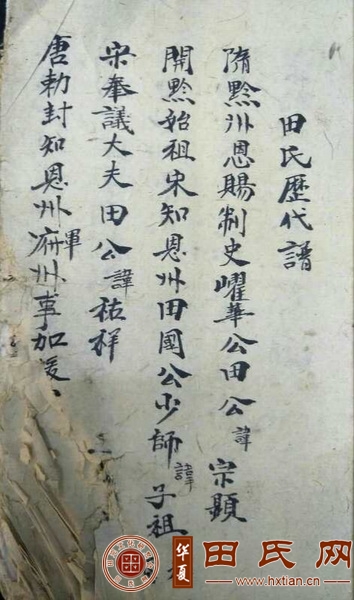 田氏歷代譜
隋黔州恩賜制史嶇華公田公諱宗顯
開黔始祖宋知恩州田國公少師諱子祖
宋奉議大夫田公諱祐祥
唐勅封知恩州軍府州事加
华夏
田氏网
www.hxtian.cn